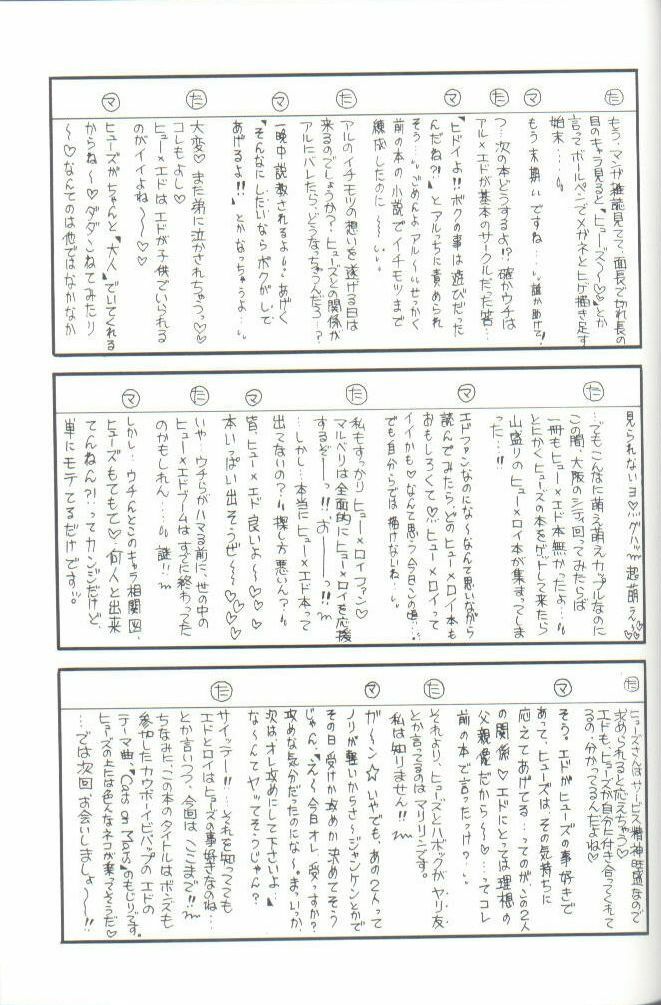 た
もう、マンガ雑誌見てて、面長で切れ長の
目のキャラ見ると、「ヒューズ～♡♡」とか
言ってボールペンでメガネとヒゲ描き足す
始末…。
マ
もう末期いですね…。誰か助けて!
た
つ…次の本どうするよ!?確かウチは
アル×エドが基本のサークルだった筈…
マ
「ヒドイよ!!ボクの事は遊びだった
んだね?!」とアルっちに責められ
そう…。ごめんよアル～。せっかく
前の本の小説でイチモツまで
練成したのに～。
た
アルのイチモツの想いを遂げる日は
来るのでしょうか?ヒューズとの関係が
アルにバレたら、どうなっちゃうんだろー?
マ
一晩中説教されるよ…。あげく
「そんなにしたいならボクがして
あげるよ!!」とかなっちゃうよ…
た
大変♡また弟に泣かされちゃうっ♡♡
コレもよし♡
ヒュー×エドはエドが子供でいられる
のがイイよね～～♡♡
マ
ヒューズがちゃんと「大人」でいてくれる
からね～♡ダダこねてみたり
～♡なんてのは他ではなかなか
見られないヨ♡グハッ 超萌え～♡♡
た
…でもこんなに萌え萌えカップルなのに
この間、大阪のシティ回ってみたらば
一冊もヒュー×エド本無かったよ…
とにかくヒューズの本をゲットして来たら
山盛りのヒュー×ロイ本が集まってしま
った…!!
マ
エドファンなのにな～なんて思いながら
読んでみたらどのヒュー×ロイ本も
おもしろくて♡ヒュー×ロイって
イイかも♡なんて思う今日この頃…。
でも自分らでは描けないね…
た
私もすっかりヒュー×ロイファン♡
マルベリは全面的にヒュー×ロイを応援
するぞーっ!!おーーっ!!
…しかし…本当にヒュー×エド本って
出てないの?探し方悪いん?
マ
皆、ヒュー×エド良いよ～♡♡♡
本いっぱい出そうぜ～～♡♡♡
た
いや、ウチらがハマる前に、世の中の
ヒュー×エドブームはすでに終わってた
のかもしれん…。謎!!
マ
しかし…ウチんとこのキャラ相関図、
ヒューズもてもて♡何人と出来
てんねん?!ってカンジだけど、
単にモテてるだけです。
た
ヒューズさんはサービス精神旺盛なので
求められると応えちゃう♡
エドも、ヒューズが自分と付き合ってくれて
るの、分かってるんだよね♡
マ
そう。エドがヒューズの事好きで
あって、ヒューズは、その気持ちに
応えてあげてる…ってのがこの2人
の関係♡エドにとっては理想の
父親像だから～♡…ってコレ
前の本で言ったっけ?…
た
それより、ヒューズとハボックがヤリ友
とか言ってるのはマリリンです。
私は知りません!!
マ
ガ～ン☆いやでも、あの2人って
ノリが軽いからさ～ジャンケンとかで
その日、受けか攻めか決めてそう
じゃん。「え～今日オレ受っすか?
攻めな気分だったのにな～。まっいっか、
次はオレ攻めにして下さいよ～」
な～んてヤッてそうじゃん?
た
サイッテー!!…それを知ってても
エドとロイはヒューズの事好きなのね…
とか言いつつ、今回はここまで!!
ちなみに、この本のタイトルはボンズも
参加したカウボーイビバップのエドの
テーマ曲、「Cats on Mars」のもじりです。
ヒューズの上には色んなネコが乗ってそうだ♡
…では次回お会いしましょ～～!!